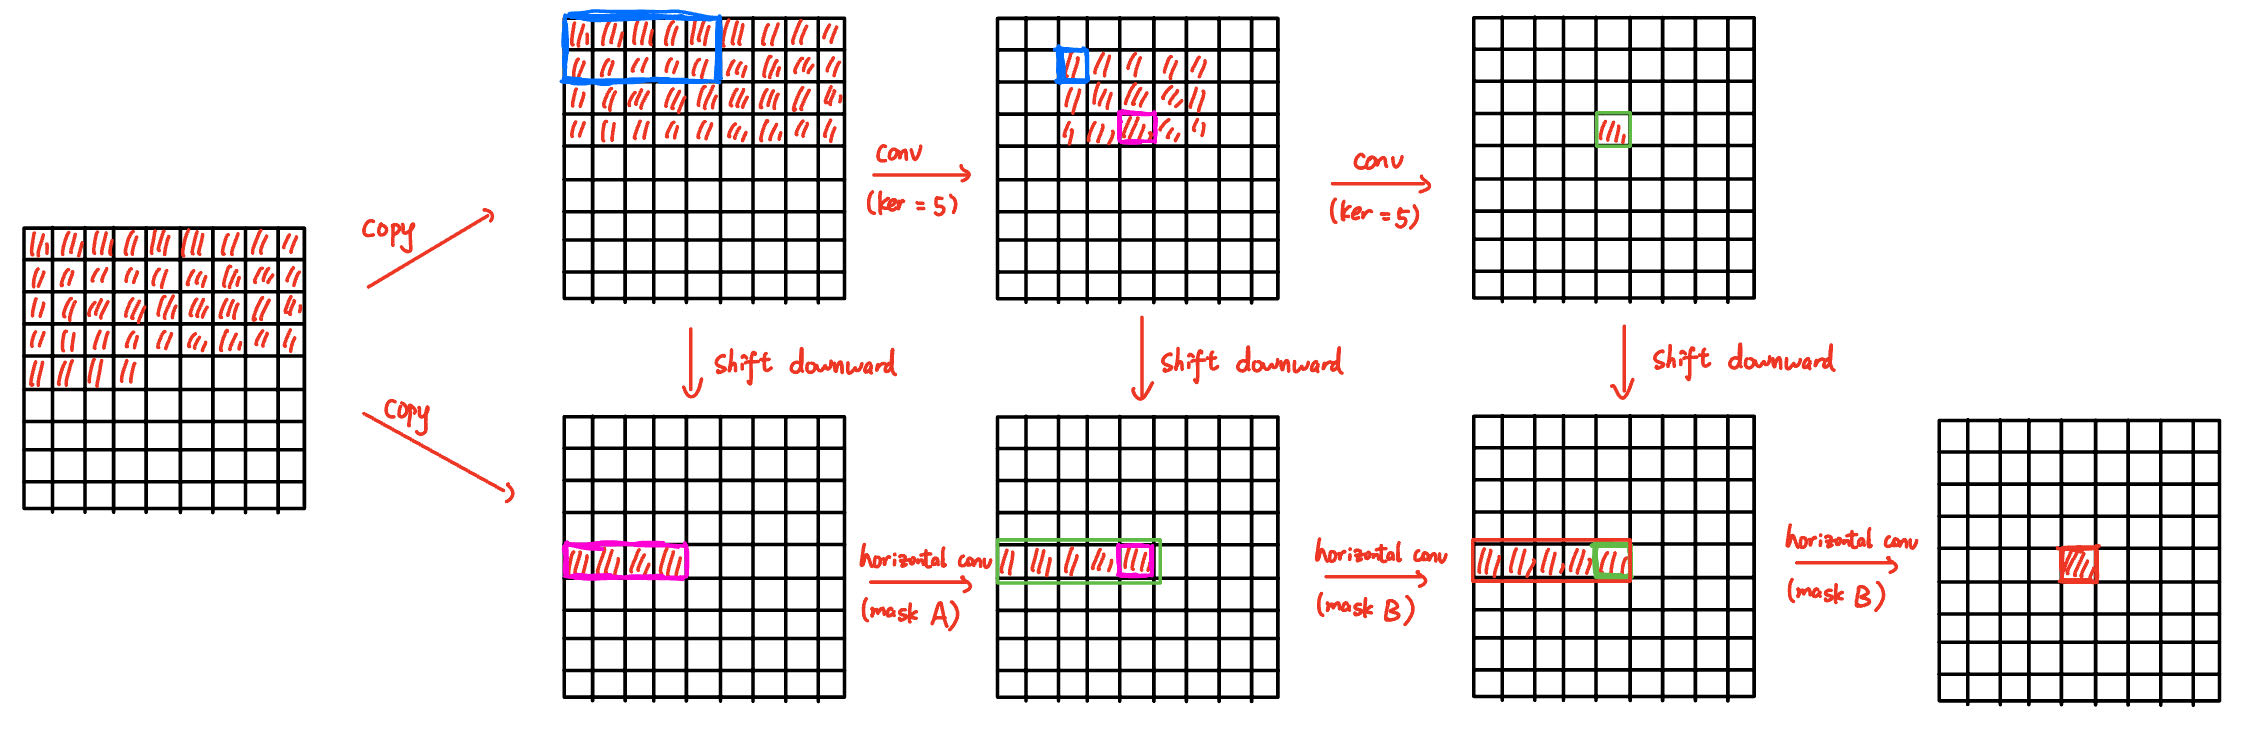 copy
conv
(ker = 5)
conv
(ker = 5)
shift downward
shift downward
shift downward
copy
horizontal conv
(mask A)
horizontal conv
(mask B)
horizontal conv
(mask B)